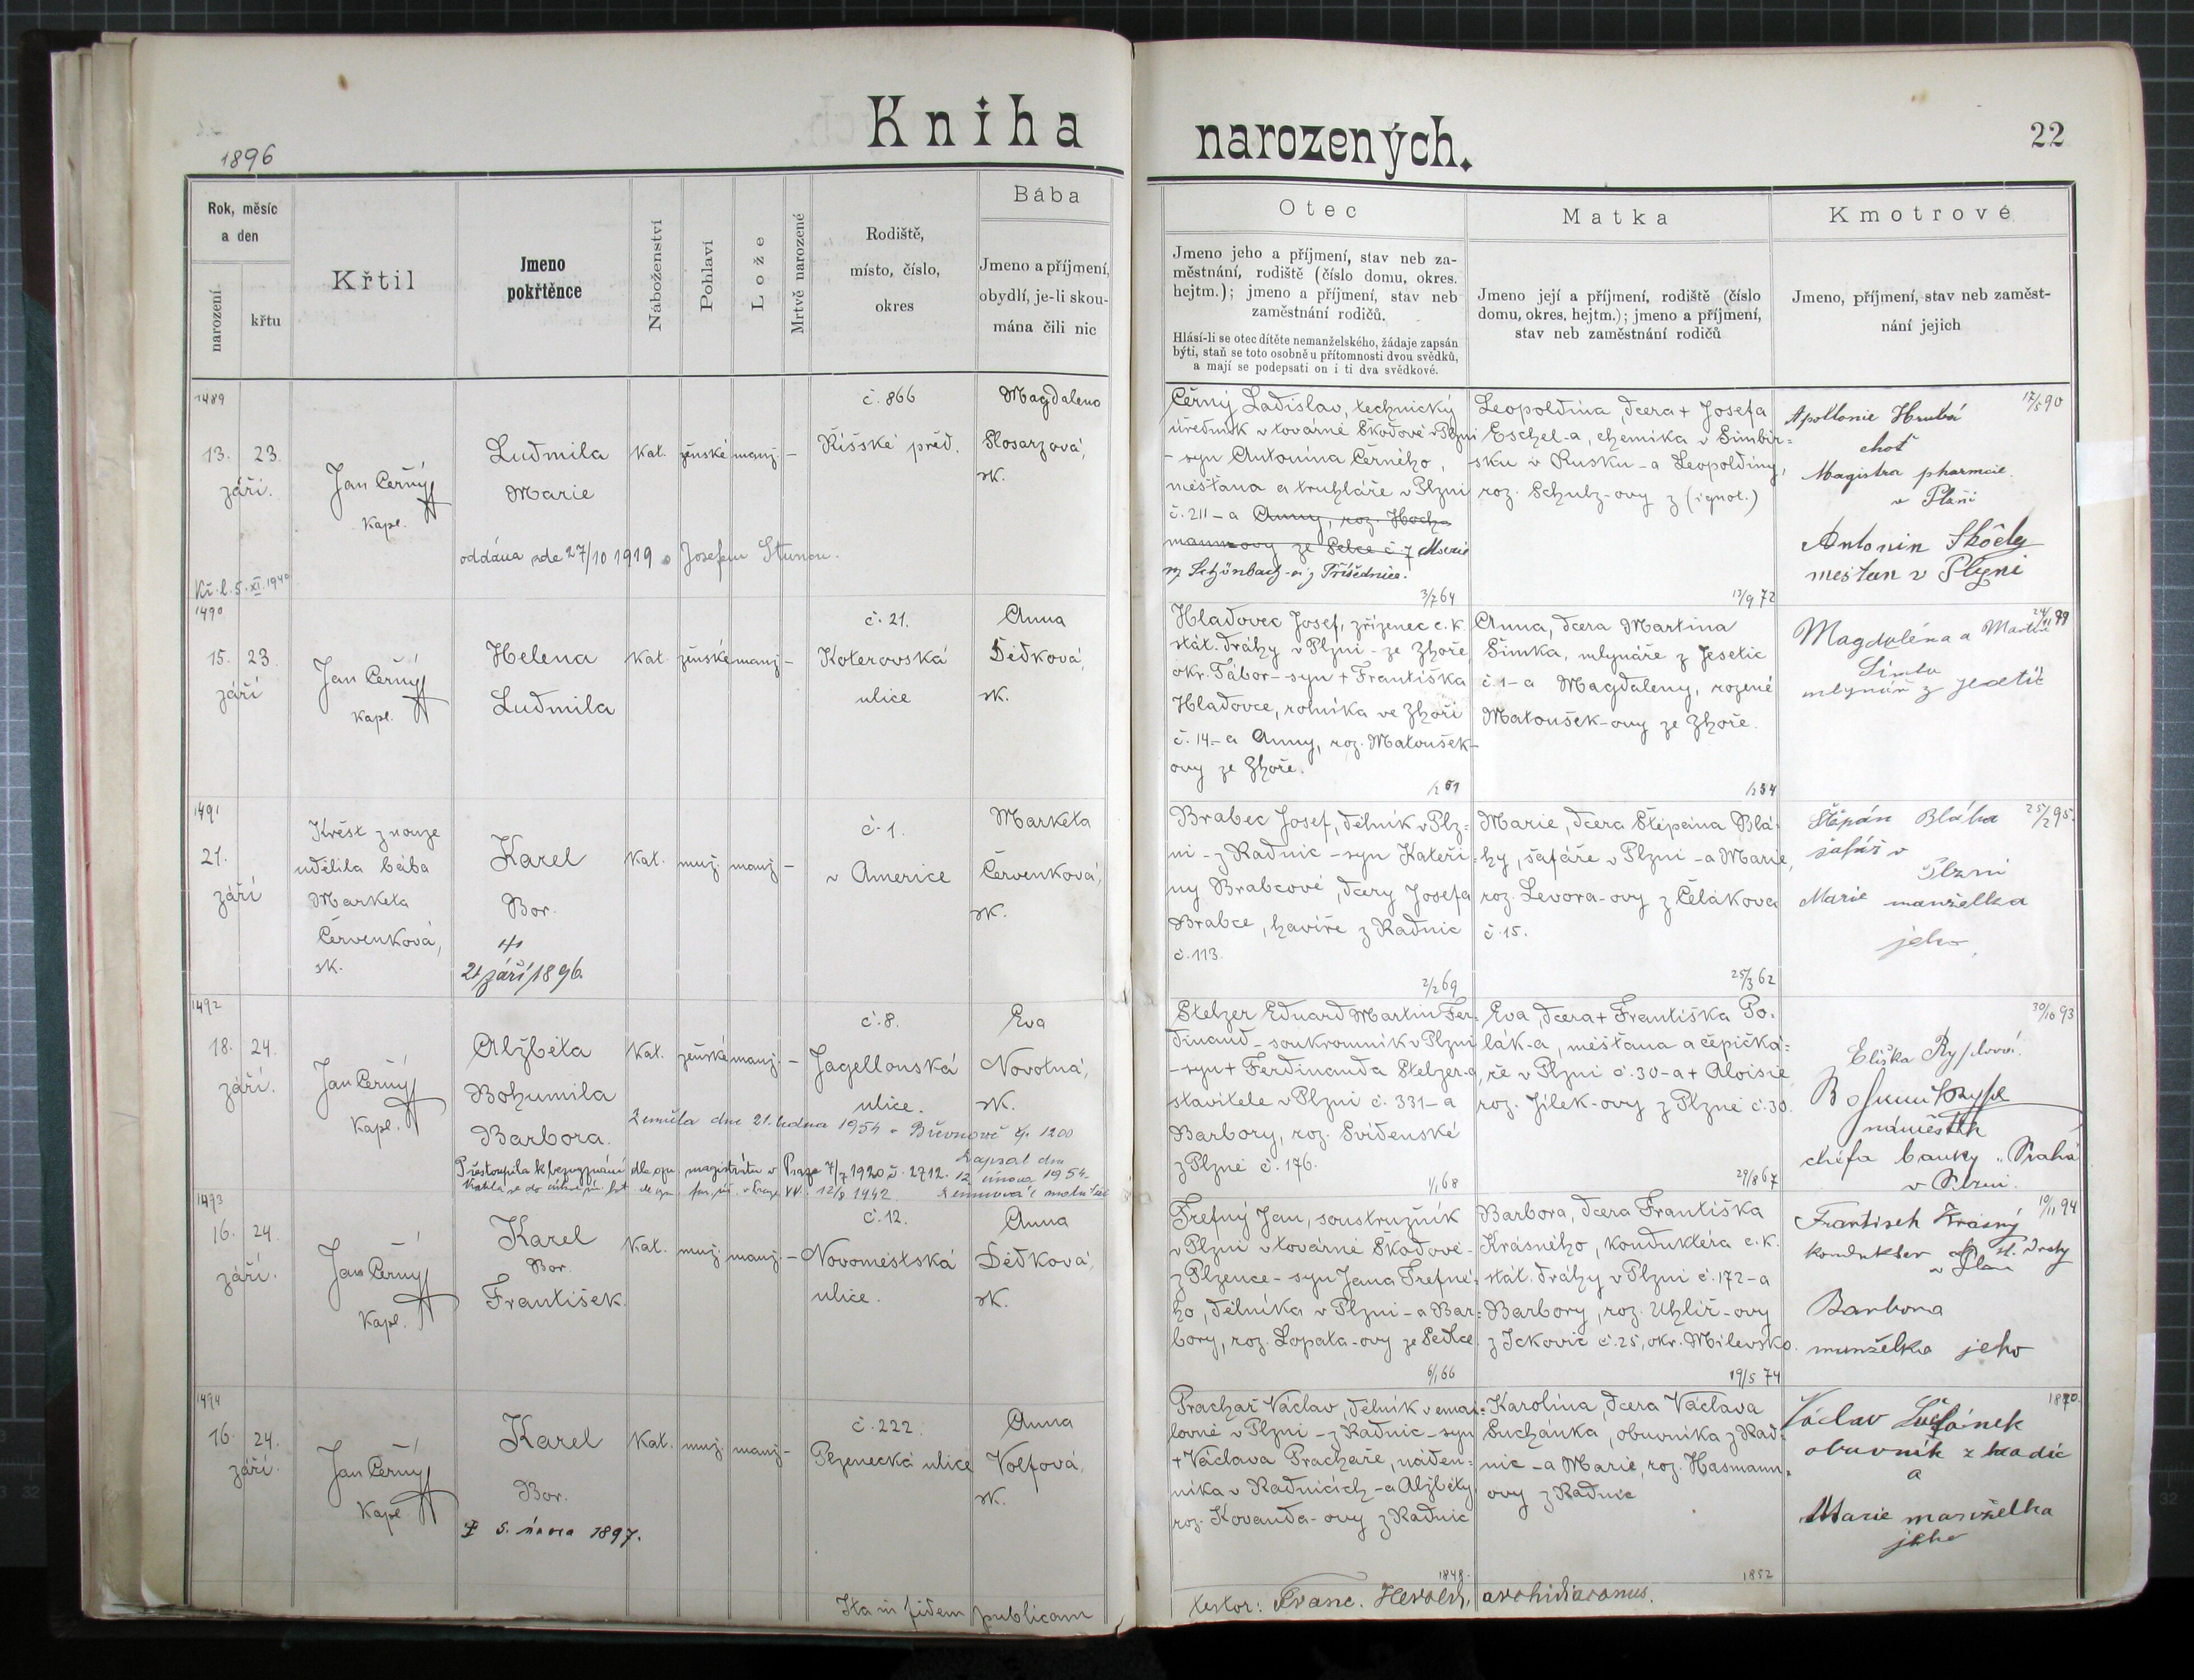 1896
Kniha narozených.
22
Rok, měsíc
a den
narození
křtu
Křtil
Jmeno
pokřtěnce
Náboženství
Pohlaví
Lože
Mrtvě narozené
Rodiště,
místo, číslo,
okres
Bába
Jmeno a příjmení,
obydlí, je-li skou-
mána čili nic
Otec
Jmeno jeho a příjmení, stav neb za-
městnání, rodiště (číslo domu, okres.
hejtm.); jmeno a příjmení, stav neb
zaměstnání rodičů.
Hlásí-li se otec dítěte nemanželského, žádaje zapsán
býti, staň se toto osobně u přítomnosti dvou svědků,
a mají se podepsati on i ti dva svědkové.
Matka
Jmeno její a příjmení, rodiště (číslo
domu, okres, hejtm.); jmeno a příjmení,
stav neb zaměstnání rodičů
Kmotrové
Jmeno, příjmení, stav neb zaměst-
nání jejich
1489
13. 23.
září.
Jan Černý
Kapl.
Ludmila
Marie
oddána dne 27/10 1919 s Josefem
5. XI. 1940
Kat. ženské manž. –
č. 866
Říšské před.
Magdalena
Slosarzová,
zk.
Černý Ladislav, technický
úředník v továrně Škodově v Plzni
– syn Antonína Černého,
měšťana a truhláře v Plzni
č. 211 – a Anny, roz. Hoch-
mannovy ze Selce č. 7 Marie
Schönbach-
3/7 64
Leopoldina, dcera + Josefa
Eschel-a, chemika v Simbir=
sku v Rusku – a Leopoldiny,
roz. Schulz-ovy z (ignot.)
13/9 72
17/5 90
Apollonie Hrubá
choť
Magistra pharmcie.
v Plzni
Antonin
mešťan v Plzni
1490
15. 23.
září
Jan Černý
Kapl.
Helena
Ludmila
Kat. ženské manž. –
č. 21.
Koterovská
ulice
Anna
Dědková,
zk.
Hladovec Josef, zřízenec c. k.
stát. dráhy v Plzni – ze Zhoře,
okr. Tábor – syn + Františka
Hladovce, rolníka ve Zhoři
č. 14 – a Anny, roz. Matoušek-
ovy ze Zhoře.
Anna, dcera Martina
Šimka, mlynáře z Jesetic
č. 1 – a Magdaleny, rozené
Matoušek-ovy ze Zhoře.
Magdaléna a Martin
Šimka
mlynář z Jesetic
1491
21.
září
Křest z nouze
udělila bába
Marketa
Červenková,
zk.
Karel
Bor.
21 září 1896.
Kat. muž. manž. –
č. 1.
v Americe
Marketa
Červenková,
zk.
Brabec Josef, dělník v Plz=
ni – z Radnic – syn Kateři=
ny Brabcové, dcery Josefa
Brabce, havíře z Radnic
č. 113.
2/2 69
Marie, dcera Štěpána Blá=
hy, šafáře v Plzni – a Marie,
roz. Levora-ovy z Čelákova
č. 15.
25/3 62
25/2 95.
Štěpán Bláha
šafář v
Plzni
Marie manželka
jeho
1492
18. 24.
září.
Jan Černý
Kapl.
Alžběta
Bohumila
Barbora.
Kat. ženské manž. –
č. 8.
Jagellonská
ulice.
Eva
Novotná,
zk.
Zemřela dne 21. ledna 1954 v Břevnově čp. 1200
Zapsal dne
12. února 1954.
Přestoupila k bezvyznání dle ozn. magistrátu v Praze 7/7 1920 č. 2712.
12/8 1942.
Stelzer Eduard Martin Fer=
dinand – soukromník v Plzni
– syn + Ferdinanda Stelzer-a,
stavitele v Plzni č. 331 – a
Barbory, roz. Svidenské
z Plzně č. 176.
1/1 68
Eva, dcera + Františka Po=
lák-a, měšťana a čepičká=
ře v Plzni č. 30 – a + Aloisie,
roz. Jílek-ovy z Plzně č. 30.
29/8 67
30/10 93
Eliška
náměstek
chéfa banky „Praha
v Plzni.
1493
16. 24.
září.
Jan Černý
Kapl.
Karel
Bor.
František.
Kat. muž. manž. –
č. 12.
Novoměstská
ulice.
Anna
Dědková,
zk.
Trefný Jan, soustružník
v Plzni v továrně Škodově –
z Plzence – syn Jana Trefné=
ho, dělníka v Plzni – a Bar=
bory, roz. Lopata-ovy ze Sedlce.
6/1 66
Barbora, dcera Františka
Krásného, konduktéra c. k.
stát. dráhy v Plzni č. 172 – a
Barbory, roz. Uhlíř-ovy
z Jckovic č. 25, okr. Milevsko.
19/5 74
10/11 94
Frantisek Krásný
kondukter st. dráhy
v Plzni
Barbora
manželka jeho
1494
16. 24.
září.
Jan Černý
Kapl
Karel
Bor.
5. února 1897.
Kat. muž. manž. –
č. 222.
Plzenecká ulice
Anna
Volfová,
zk.
Prachař Václav, dělník v emai=
lovně v Plzni – z Radnic – syn
+ Václava Prachaře, náden=
níka v Radnicích – a Alžběty,
roz. Kovanda-ovy z Radnic
1848.
Karolina, dcera Václava
Suchánka, obuvníka z Rad=
nic – a Marie, roz. Hasmann-
ovy z Radnic
1852
1870.
Václav
obuvník z Radnic
a
Marie manželka
jeho
Ita in fidem publicam testor: Franc. Herold, archidiaconus.